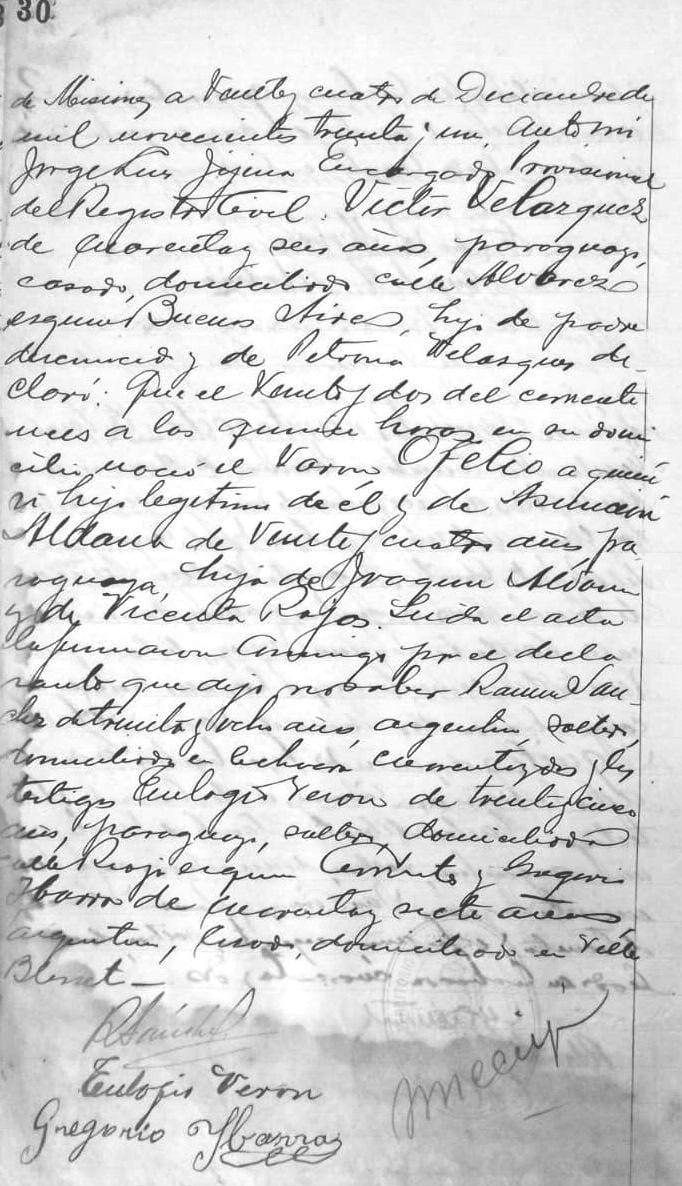 30
de Misiones a Veinte y cuatro de Diciembre de
mil novecientos treinta y un, Ante mi
Jorge Luis Encargado Provisional
del Registro Civil. Victor Velazquez
de cuarenta y seis años, paraguayo,
casado, domiciliado calle Alvarez
esquina Buenos Aires, hijo de padre
desconocido y de Petrona Velasquez de-
claró: Que el Veinte y dos del corriente
mes a las quince horas en su domi
cilio nació el Varon Ofelio a quien
hijo legitimo de él y de Asuncion
Aldana de Veinte y cuatro años, pa-
raguaya, hija de Joaquin Aldana
y de Vicenta Rojas. Leida el acta
la firmaron Conmigo por el decla
rante que dijo no saber Ramon San-
chez de treinta y ocho años, argentino, soltero,
domiciliado en cuarenta y dos y los
testigos Eulogio Veron de treinta y cinco
años, paraguayo, soltero, domiciliado
calle Rioja esquina y Gregorio
Ibarra de cuarenta y siete años
argentino, casado, domiciliado en Villa
Blanet_
R Sanchez
Eulogio Veron
Gregorio Ybarra